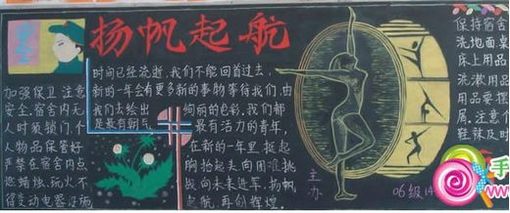 扬帆起航
加强保卫 注意
安全.宿舍内无
人时须锁门.个
人物品保管好
严禁在宿舍内点
燃蜡烛.玩火不
得变动电器设施
时间已经流逝.我们不能回首过去,
新的一年会有更多新的事物等待我们,由
我们去绘出
绚丽的色彩,我们都
是最有朝气
最有活力的青年,
在新的一年里 挺起
胸抬起头.向困难挑
战.向未来进军.扬帆
起航.再创辉煌.
主
办
06级14
保持宿舍
洗地面桌
床上用品
洗漱用品
用品要摆
属.注意个
鞋袜及时
手
www